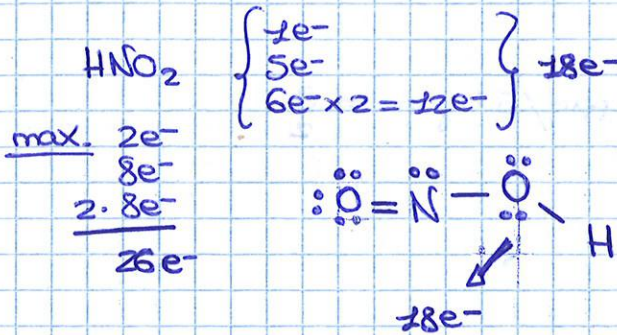 HNO₂ { 1e⁻
5e⁻
6e⁻ x 2 = 12e⁻ } 18e⁻
max. 2e⁻
8e⁻
2. 8e⁻
26e⁻
:Ö=N̈—Ö
H
18e⁻